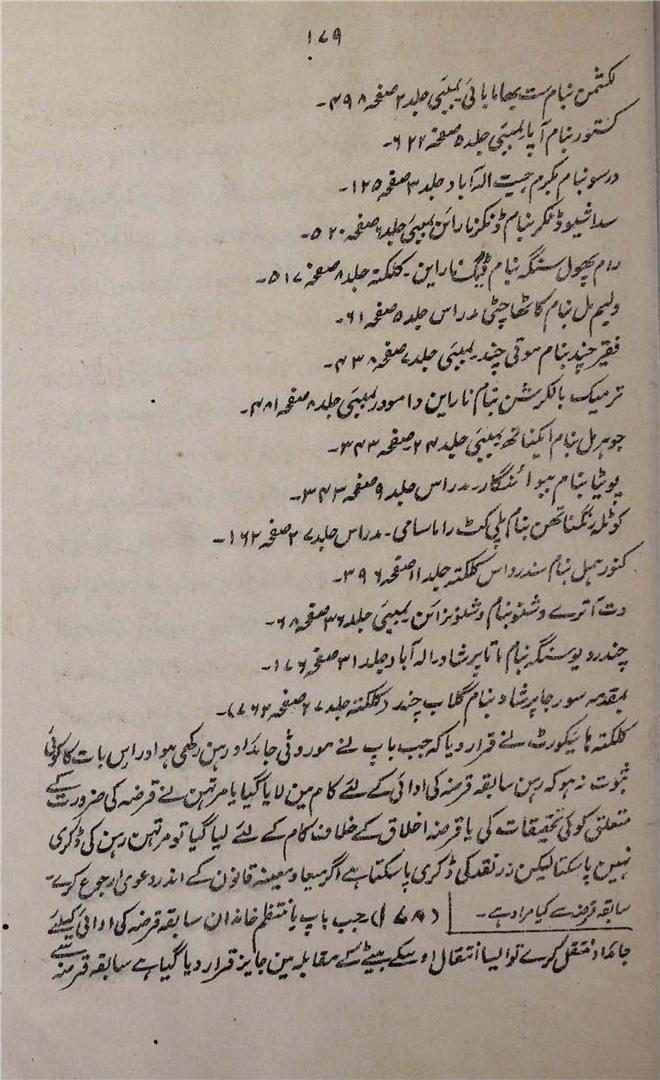 ۱۷۹
لکشمن بنام ست بھاما بائی بمبئی جلد ۲ صفحہ ۴۹۸۔
کستور بنام آپا بمبئی جلد ۵ صفحہ ۶۲۲۔
درسو بنام بکرم جیت الہ آباد جلد ۳ صفحہ ۱۲۵۔
سداشیو ڈنکر بنام ڈنکر نارائن بمبئی جلد ۶ صفحہ ۵۲۰۔
رام پھول سنگہ بنام ڈیگ ناراین۔ کلکتہ جلد ۸ صفحہ ۵۱۷۔
ولیم مل بنام کاٹھا چٹی مدراس جلد ۵ صفحہ ۶۱۔
فقیر چند بنام موتی چند بمبئی جلد ۷ صفحہ ۴۳۸۔
ترمبک بالکرشن بنام ناراین دامودر بمبئی جلد ۸ صفحہ ۴۸۱۔
جوہر مل بنام ایکناتھ بمبئی جلد ۲۴ صفحہ ۳۴۳۔
پونیا بنام بنام مدراس جلد ۹ صفحہ ۳۴۳۔
کوٹلہ رنگناتھن بنام پلی کٹ راماسامی۔ مدراس جلد ۲۷ صفحہ ۱۶۲۔
کنور ہمل بنام سندر داس کلکتہ جلد ۱۱ صفحہ ۳۹۶۔
دت آترے وشنو بنام وشنو نرائن بمبئی جلد ۳۶ صفحہ ۶۸۔
چندر دیو سنگہ بنام ماتا پرشاد الہ آباد جلد ۳۱ صفحہ ۱۷۶۔
بمقدمہ سورجا پرشاد بنام گلاب چند (کلکتہ جلد ۲۷ صفحہ ۷۶۲)
کلکتہ ہائیکورٹ نے قرار دیا کہ جب باپ نے موروثی جائداد رہن رکھی ہو اور اس بات کا کوئی
ثبوت نہ ہو کہ رہن سابقہ قرضہ کی ادائی کے لئے کام مین لایا گیا یا مرتہن نے قرضہ کی ضرورت کے
متعلق کوئی تحقیقات کی یا قرضہ اخلاق کے خلاف کام کے لئے لیا گیا تو مرتہن رہن کی ڈگری
نہین پا سکتا لیکن زر نقد کی ڈگری پا سکتا ہے اگر میعاد معینہ قانون کے اندر دعویٰ رجوع کرے۔
سابقہ قرضہ سے کیا مراد ہے۔ (۱۷۸) جب باپ یا منتظم خاندان سابقہ قرضہ کی ادائی کیلئے
جائداد منتقل کرے تو ایسا انتقال اوسکے بیٹے کے مقابلہ مین جایز قرار دیا گیا ہے سابقہ قرضہ سے